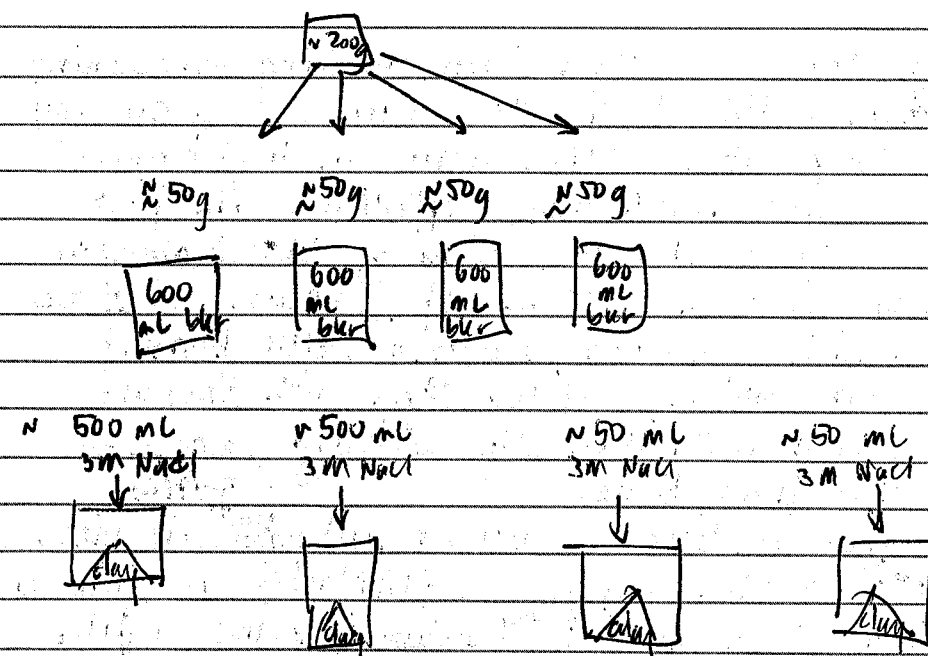 ~ 200g
≈ 50g ≈ 50g ≈ 50g ≈ 50g
600 mL bkr
600 mL bkr
600 mL bkr
600 mL bkr
~ 500 mL ~ 500 mL ~ 50 mL ~ 50 mL
3M NaCl 3M NaCl 3M NaCl 3M NaCl
clay clay clay clay